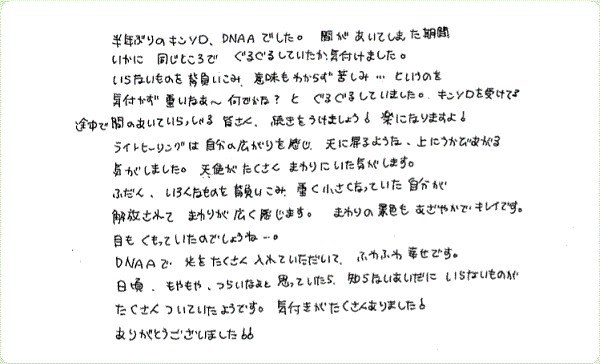 半年ぶりのキンYD、DNAAでした。 間があいてしまった期間
いかに 同じところで ぐるぐるしていたか気付けました。
いらないものを背負いこみ、意味もわからず苦しみ… というのを
気付かず 重いなあ〜 何でかな？と ぐるぐるしていました。キンYDを受けてる
途中で間のあいていらっしゃる 皆さん、続きをうけましょう！ 楽になりますよ！
ライトヒーリングは自分の広がりを感じ、天に昇るような、上にうかびあがる
気がしました。天使がたくさん まわりにいた気がします。
ふだん、いろんなものを背負いこみ 重く小さくなっていた 自分が
解放されて まわりが広く感じます。 まわりの景色も あざやかで キレイです。
目も くもっていたのでしょうね…。
DNAAで 光をたくさん入れていただいて、ふわふわ 幸せです。
日頃、もやもや、つらいなぁと思っていたら、知らないあいだに いらないものが
たくさん ついていたようです。気付きがたくさんありました！
ありがとうございました！！